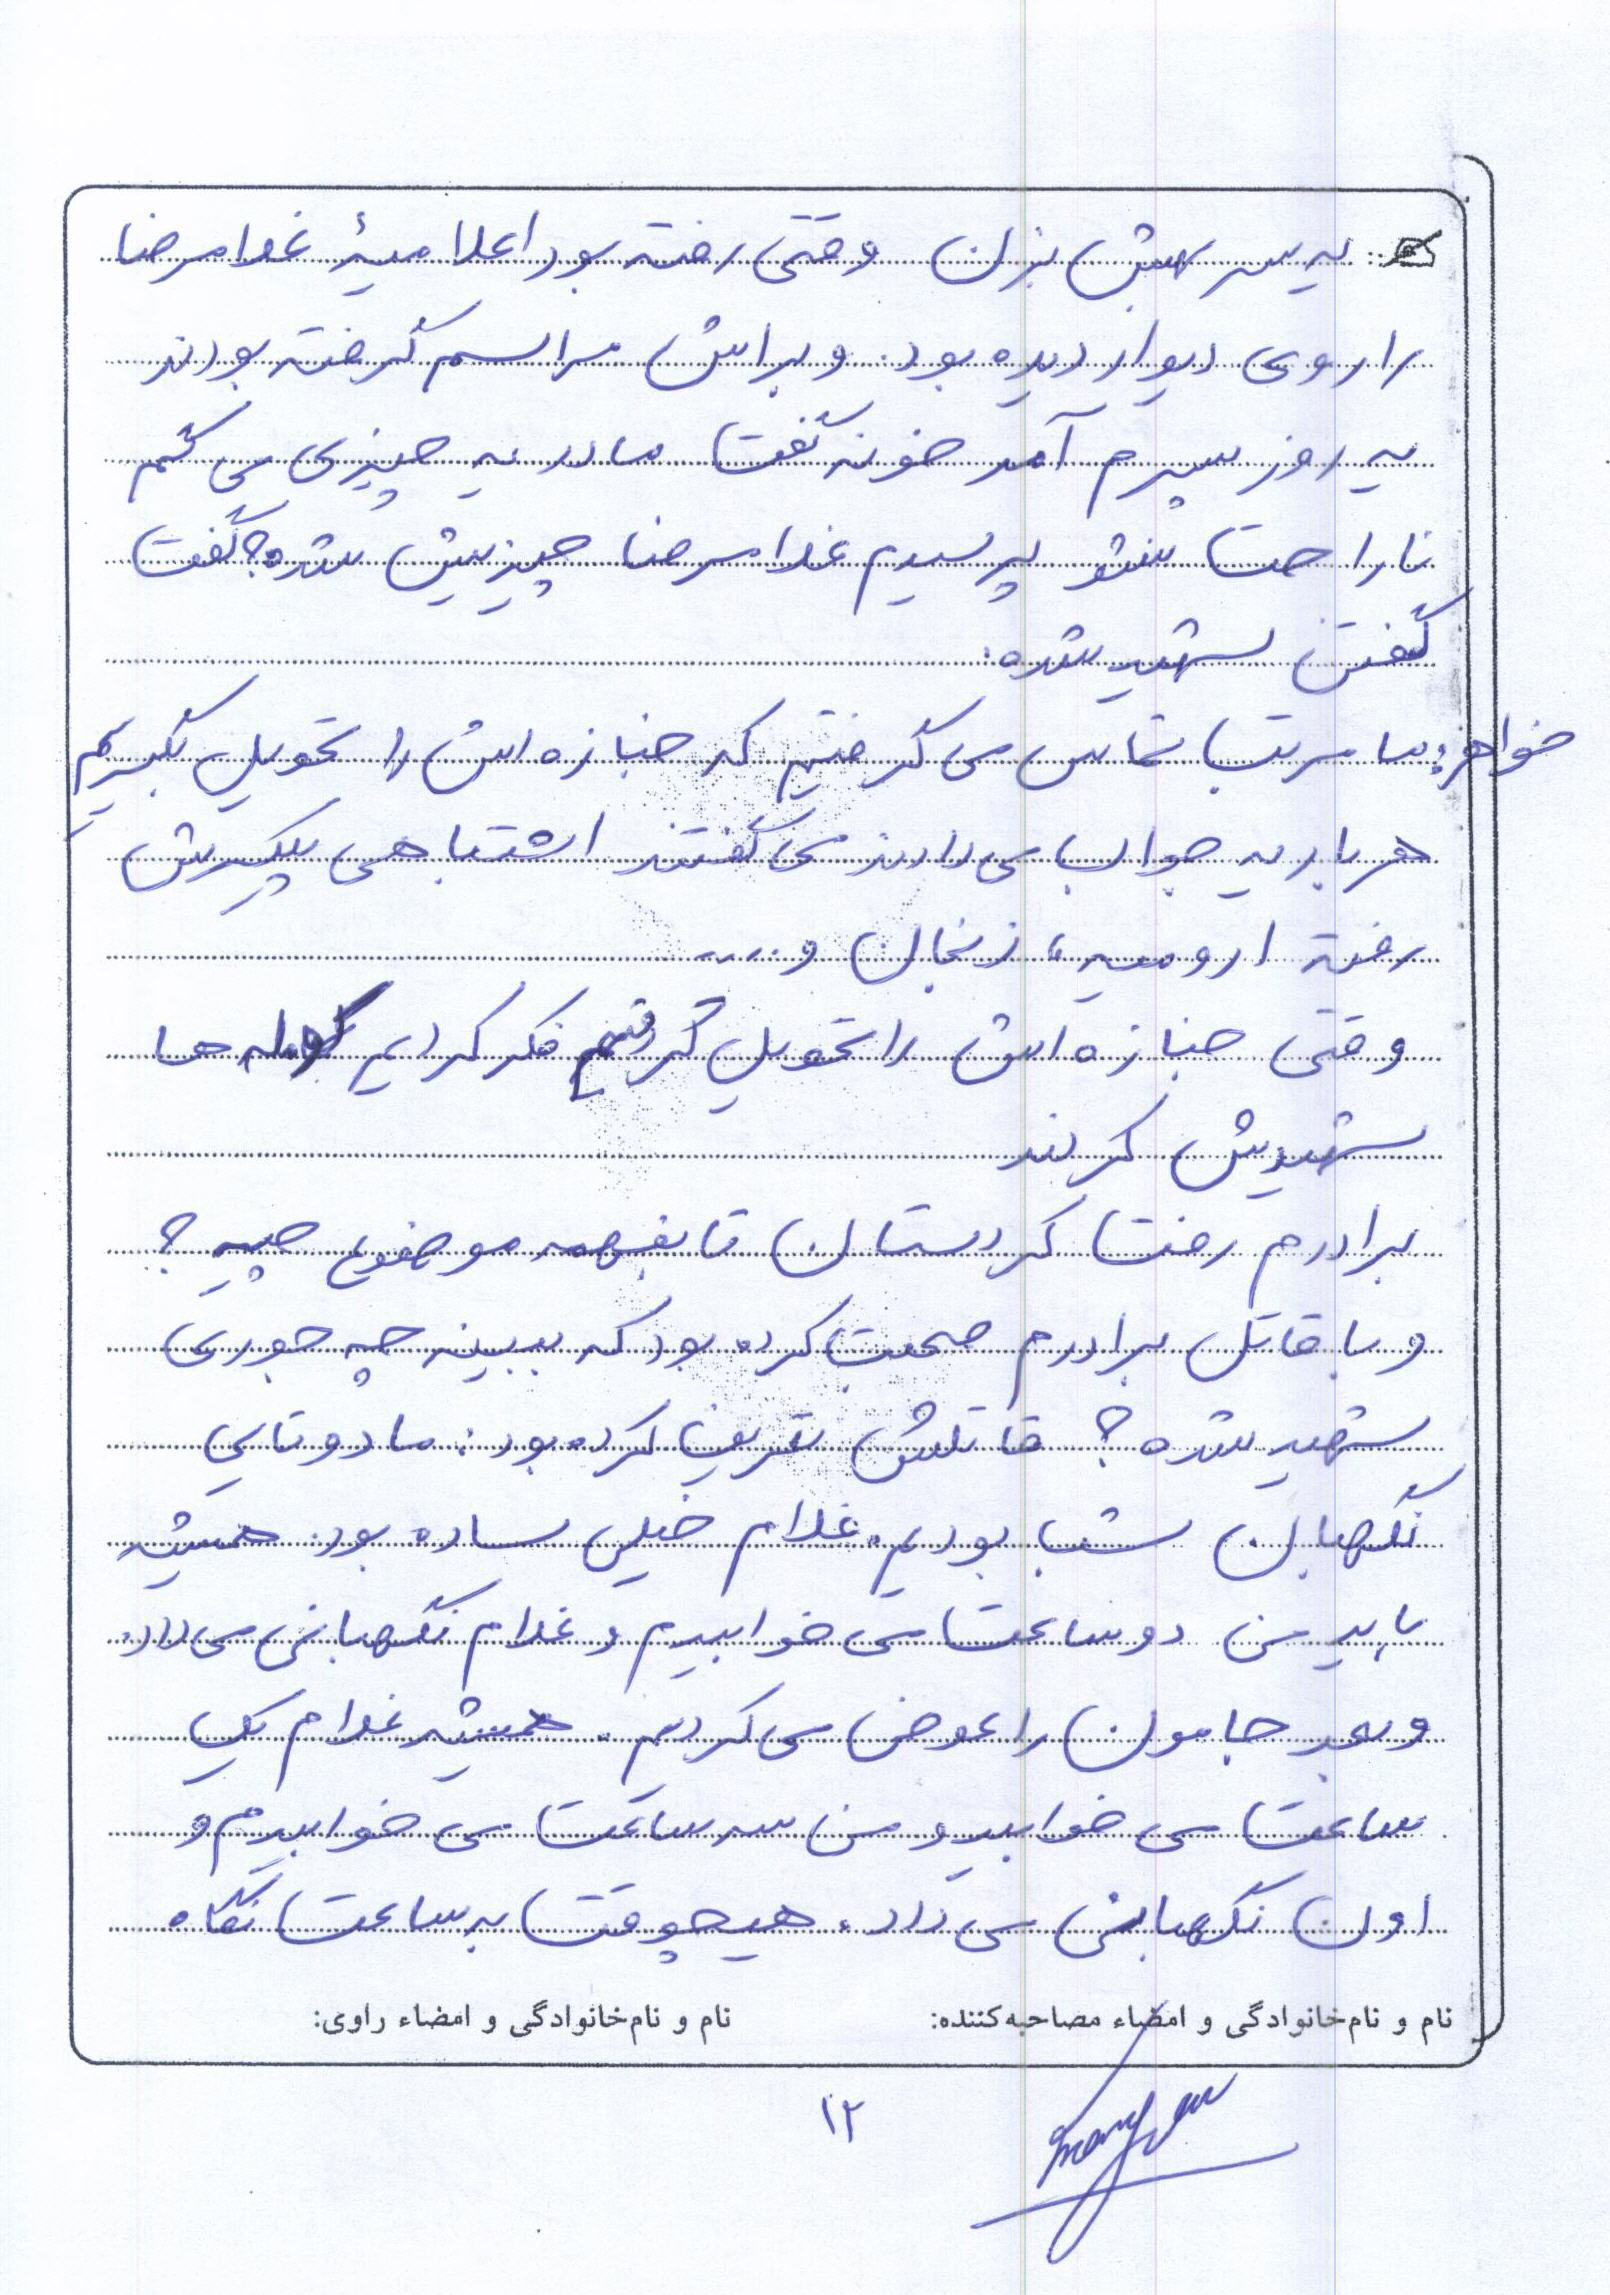 یه سر بهش بزن وقتی رفته بود اعلامیهٔ غلامرضا
را روی دیوار دیده بود. و براش مراسم گرفته بودند
یه روز پسرم آمد خونه گفت مادر یه چیزی می گم
ناراحت نشو پرسیدم غلامرضا چیزیش شده؟ گفت
گفتن شهید شده.
خواهر: ما مرتب تماس می گرفتیم که جنازه اش را تحویل بگیریم
هر بار یه جواب می دادند می گفتند اشتباهی پیکرش
رفته ارومیه، زنجان و....
وقتی جنازه اش را تحویل گرفتیم فکر کردیم کومله ها
شهیدش کردند
برادرم رفت کردستان تا بفهمه موضوع چیه ؟
و با قاتل برادرم صحبت کرده بود که ببینه چه جوری
شهید شده ؟ قاتلش تعریف کرده بود : ما دوتایی
نگهبان شب بودیم. غلام خیلی ساده بود. همیشه
باید من دو ساعت می خوابیدم و غلام نگهبانی می داد.
و بعد جامون را عوض می کردیم. همیشه غلام یک
ساعت می خوابید و من سه ساعت می خوابیدم و
اون نگهبانی می داد. هیچوقت به ساعت نگاه
نام و نام‌خانوادگی و امضاء مصاحبه‌کننده: نام و نام‌خانوادگی و امضاء راوی:
۱۲